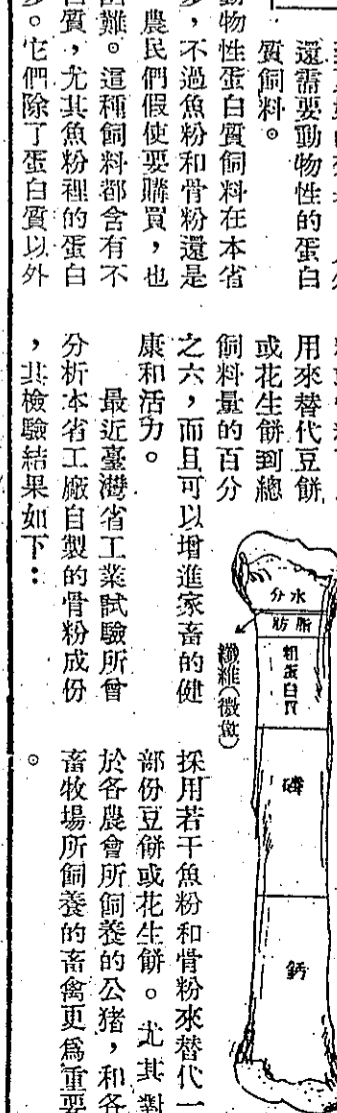 還需要動物性的蛋白
質飼料。
動物性蛋白質飼料在本省
多，不過魚粉和骨粉還是
農民們假使要購買，也
困難。這種飼料都含有不
白質，尤其魚粉裡的蛋白
多。它們除了蛋白質以外
用來替代豆餅
或花生餅到總
飼料量的百分
之六，而且可以增進家畜的健
康和活力。
最近臺灣省工業試驗所曾
分析本省工廠自製的骨粉成份
，其檢驗結果如下：
分水
肪脂
纖維(微量)
粗蛋白質
磷
鈣
採用若干魚粉和骨粉來替代一
部份豆餅或花生餅。尤其對
於各農會所飼養的公猪，和各
畜牧場所飼養的畜禽更爲重要
。